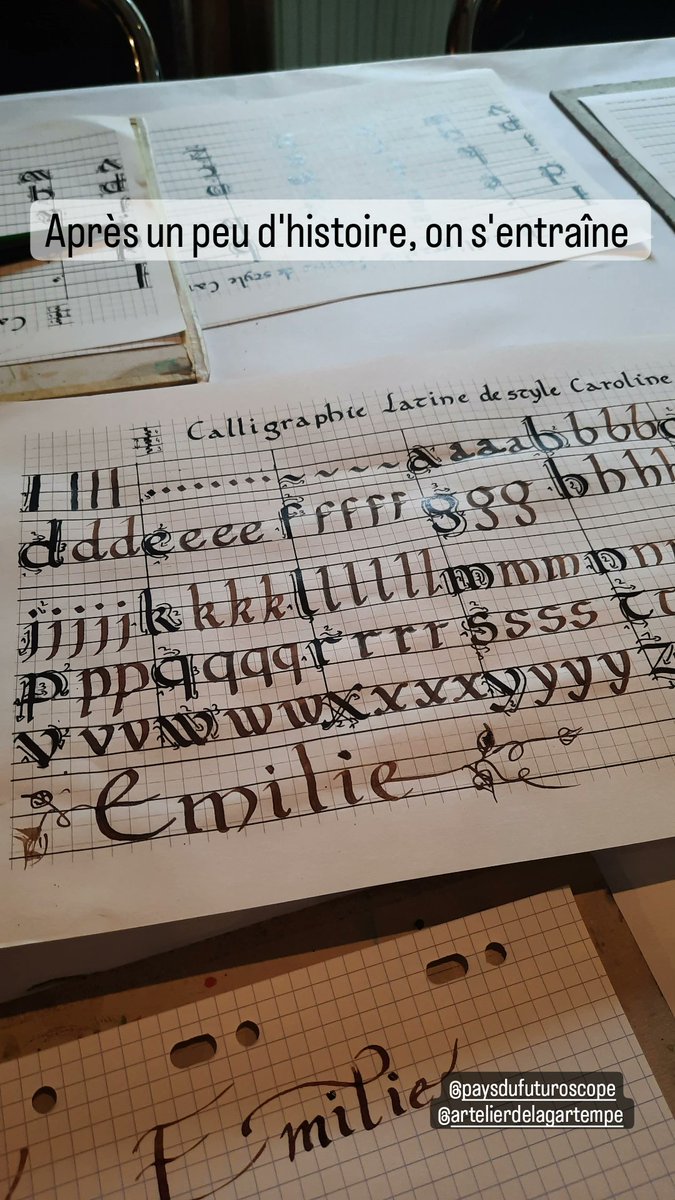 Après un peu d'histoire, on s'entraîne
Calligraphie Latine de style Caroline
l l l l a a a a b b b b
d d d d e e e e f f f f f g g g h h h h
j j j j j k k k k l l l l l l m m m n n
p p p q q q q r r r r r s s s s t t
v v v w w w x x x x y y y y z
Emilie
Emilie
@paysdufuturoscope
@artelierdelagartempe